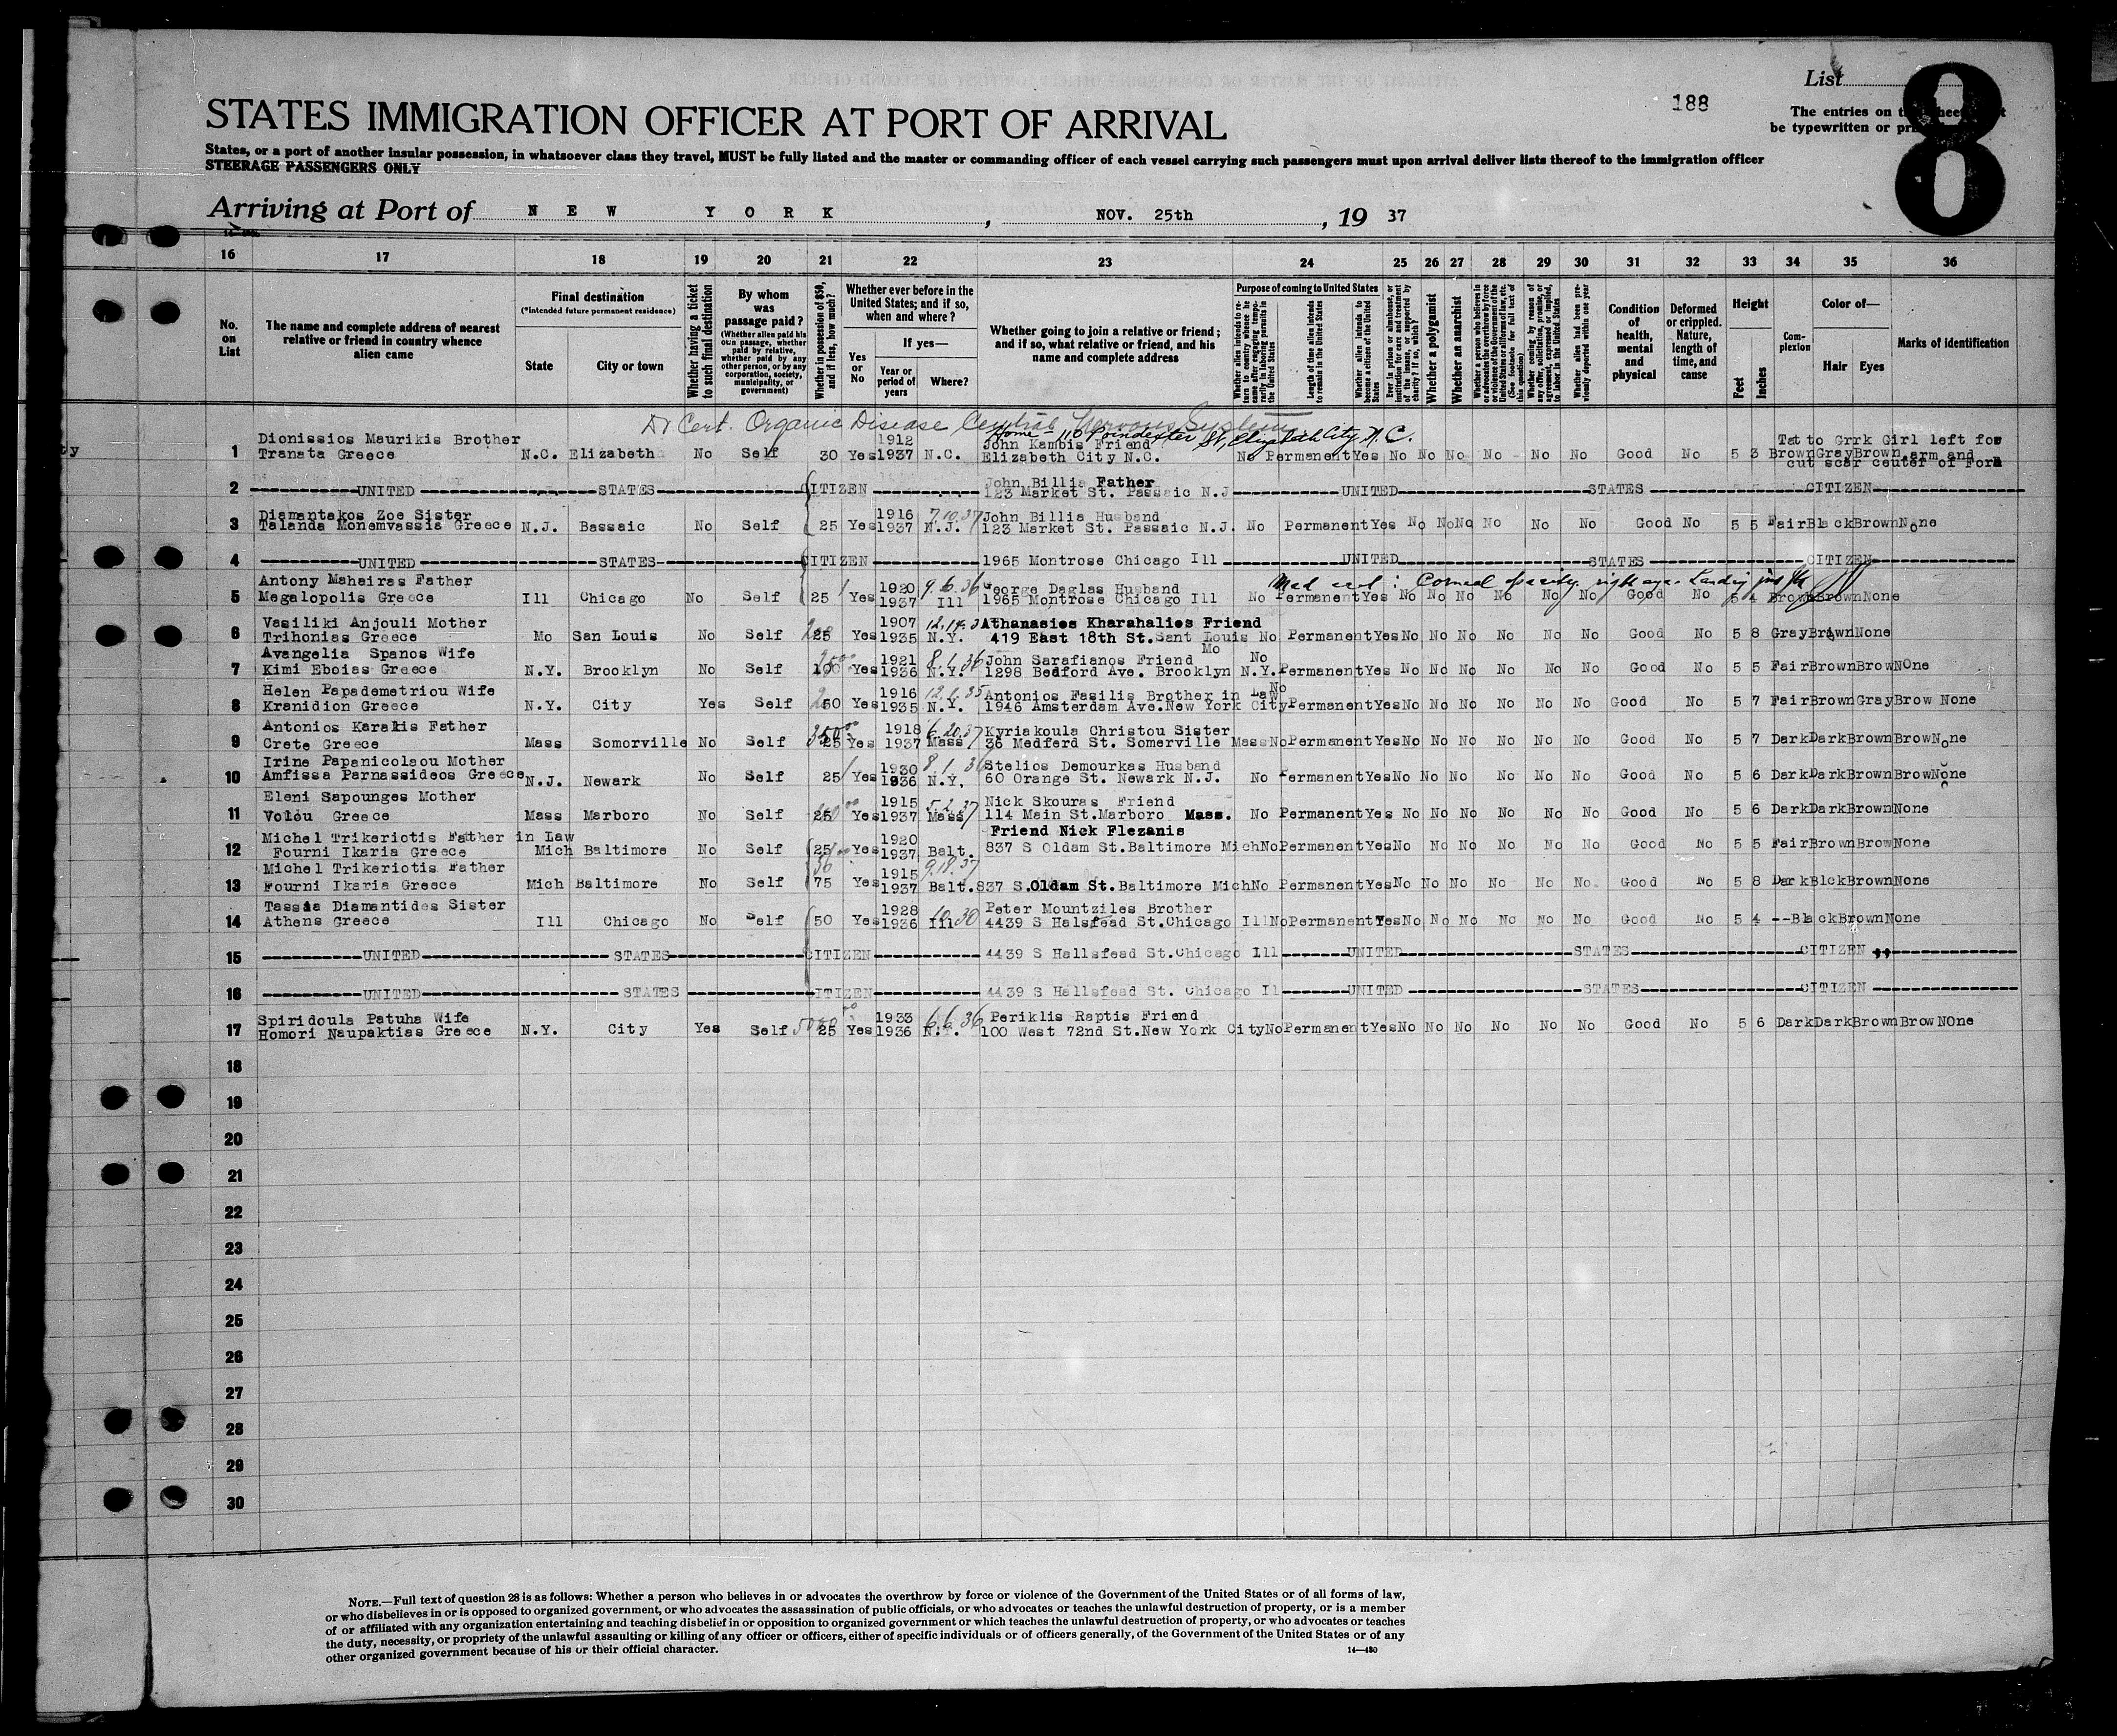 List
8
188
The entries on
be typewritten or
STATES IMMIGRATION OFFICER AT PORT OF ARRIVAL
States, or a port of another insular possession, in whatsoever class they travel, MUST be fully listed and the master or commanding officer of each vessel carrying such passengers must upon arrival deliver lists thereof to the immigration officer
STEERAGE PASSENGERS ONLY
Arriving at Port of NEW YORK, NOV. 25th, 19 37
16 17 18 19 20 21 22 23 24 25 26 27 28 29 30 31 32 33 34 35 36
No. on List
The name and complete address of nearest relative or friend in country whence alien came
Final destination
(*Intended future permanent residence)
State
City or town
Whether having a ticket to such final destination
By whom was passage paid?
(Whether alien paid his own passage, whether paid by relative, whether paid by any other person, or by any corporation, society, municipality, or government)
Whether in possession of $50, and if less, how much?
Whether ever before in the United States; and if so, when and where?
Yes or No
If yes—
Year or period of years
Where?
Whether going to join a relative or friend; and if so, what relative or friend, and his name and complete address
Purpose of coming to United States
Whether alien intends to return to country whence he came after engaging temporarily in laboring pursuits in the United States
Length of time alien intends to remain in the United States
Whether alien intends to become a citizen of the United States
Ever in prison or almshouse, or institution for care and treatment of the insane, or supported by charity? If so, which?
Whether a polygamist
Whether an anarchist
Whether a person who believes in or advocates the overthrow by force or violence of the Government of the United States or all forms of law, etc. (See footnote for full text of this question)
Whether coming by reason of any offer, solicitation, promise, or agreement, expressed or implied, to labor in the United States
Whether alien had been previously deported within one year
Condition of health, mental and physical
Deformed or crippled. Nature, length of time, and cause
Height
Feet
Inches
Complexion
Color of—
Hair
Eyes
Marks of identification
Dr Cert. Organic Disease Central Nervous System
Home - 110 Poindexter St, Elizabeth City N.C.
Dionissios Maurikis Brother 1912 John Kambis Friend Tat to Grrk Girl left for
1 Tranata Greece N.C. Elizabeth No Self 30 Yes 1937 N.C. Elizabeth City N.C. No Permanent Yes No No No No No No Good No 5 3 Brown Gray Brown arm and
cut scar center of Forh
John Billia Father
2 UNITED STATES CITIZEN 123 Market St. Passaic N.J UNITED STATES CITIZEN
Diamantakos Zoe Sister 1916 7.10.37 John Billia Husband
3 Talanda Monemvassia Greece N.J. Bassaic No Self 25 Yes 1937 N.J. 123 Market St. Passaic N.J. No Permanent Yes No No No No No No Good No 5 5 Fair Black Brown None
4 UNITED STATES CITIZEN 1965 Montrose Chicago Ill UNITED STATES CITIZEN
Med cert: Corneal opacity right eye.
Antony Maheiras Father 1920 9.6.36 George Daglas Husband
5 Megalopolis Greece Ill Chicago No Self 25 Yes 1937 Ill 1965 Montrose Chicago Ill No Permanent Yes No No No No No No Good No 5 4 Brown Brown None
Vasiliki Anjouli Mother 1907 Athanasios Kharahalios Friend
6 Trihonias Greece Mo San Louis No Self 25 Yes 1935 N.Y. 419 East 18th St. Sant Louis No Permanent Yes No No No No No No Good No 5 8 Gray Brown None
Mo
Avangelia Spanos Wife 1921 8.1.36 John Sarafianos Friend No
7 Kimi Eboias Greece N.Y. Brooklyn No Self 100 Yes 1936 N.Y. 1298 Bedford Ave. Brooklyn N.Y. Permanent Yes No No No No No No Good No 5 5 Fair Brown Brow NOne
Helen Papademetriou Wife 1916 12.1.35 Antonios Fasilis Brother in Law No
8 Kranidion Greece N.Y. City Yes Self 50 Yes 1935 N.Y. 1946 Amsterdam Ave. New York City Permanent Yes No No No No No No Good No 5 7 Fair Brown Gray Brow None
Antonios Karakis Father 1918 6.20.37 Kyriakoula Christou Sister
9 Crete Greece Mass Somorville No Self 25 Yes 1937 Mass 36 Medferd St. Somerville Mass No Permanent Yes No No No No No No Good No 5 7 Dark Dark Brown Brow None
Irine Papanicolaou Mother 1930 8.1.36 Stelios Demourkas Husband
10 Amfissa Parnassideos Greece N.J. Newark No Self 25 Yes 1936 N.Y. 60 Orange St. Newark N.J. No Permanent Yes No No No No No No Good No 5 6 Dark Dark Brown Brow None
Eleni Sapounges Mother 1915 5.2.37 Nick Skouras Friend
11 Volou Greece Mass Marboro No Self 25 Yes 1937 Mass 114 Main St. Marboro Mass. No Permanent Yes No No No No No No Good No 5 6 Dark Dark Brown None
Michel Trikeriotis Father in Law 1920 Friend Nick Flezanis
12 Fourni Ikaria Greece Mich Baltimore No Self 25 Yes 1937 Balt. 837 S Oldam St. Baltimore Mich No Permanent Yes No No No No No No Good No 5 5 Fair Brown Brow None
Michel Trikeriotis Father 1915 9.18.37
13 Fourni Ikaria Greece Mich Baltimore No Self 75 Yes 1937 Balt. 837 S. Oldam St. Baltimore Mich No Permanent Yes No No No No No No Good No 5 8 Dark Blck Brown None
Tassia Diamantides Sister 1928 10.30 Peter Mountziles Brother
14 Athens Greece Ill Chicago No Self 50 Yes 1936 Ill 4439 S Halsfead St. Chicago Ill No Permanent Yes No No No No No No Good No 5 4 --Black Brown None
15 UNITED STATES CITIZEN 4439 S Hallsfead St. Chicago Ill UNITED STATES CITIZEN
16 UNITED STATES ITIZEN 4439 S Hallsfead St. Chicago Il UNITED STATES CITIZEN
Spiridoula Patuha Wife 1933 6.6.36 Periklis Raptis Friend
17 Homori Naupaktias Greece N.Y. City Yes Self 25 Yes 1936 N.Y. 100 West 72nd St. New York City No Permanent Yes No No No No No No Good No 5 6 Dark Dark Brown Brow NOne
18
19
20
21
22
23
24
25
26
27
28
29
30
NOTE.—Full text of question 28 is as follows: Whether a person who believes in or advocates the overthrow by force or violence of the Government of the United States or of all forms of law,
or who disbelieves in or is opposed to organized government, or who advocates the assassination of public officials, or who advocates or teaches the unlawful destruction of property, or is a member
of or affiliated with any organization entertaining and teaching disbelief in or opposition to organized government or which teaches the unlawful destruction of property, or who advocates or teaches
the duty, necessity, or propriety of the unlawful assaulting or killing of any officer or officers, either of specific individuals or of officers generally, of the Government of the United States or of any
other organized government because of his or their official character.
14—430